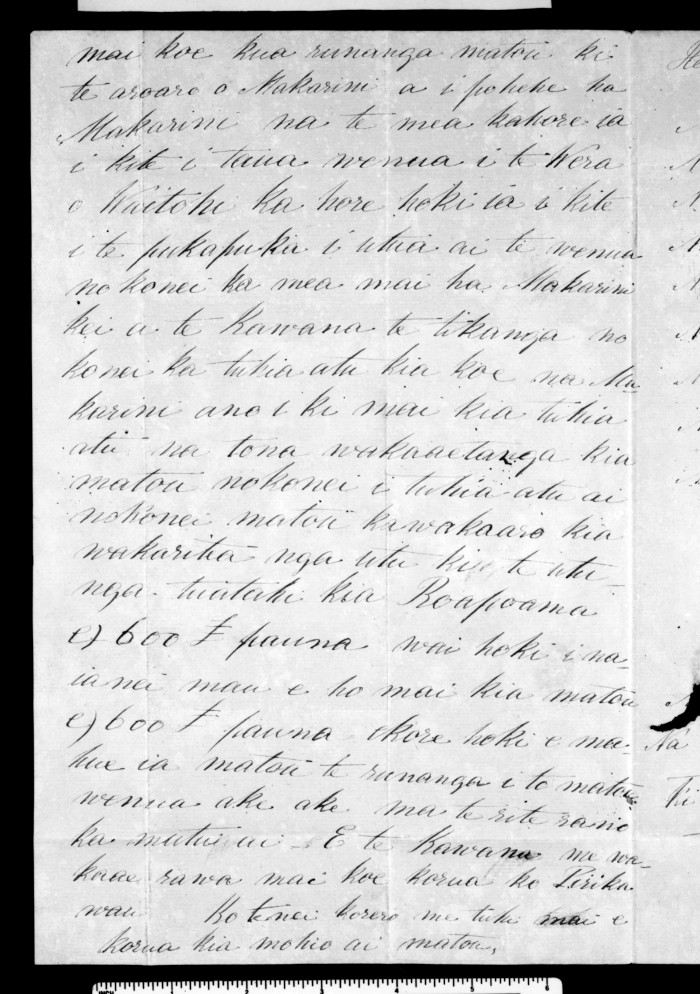 mai koe kua runanga matou ki
te aroaro o Makarini a i pohehe ha
Makarini na te mea kahore ia
i kite i taua wenua i te Wera
o Waitohi ka hore hoki ia i kite
i te pukapuka i utua ai te wenua
no konei ka mea mai ha Makarini
kei a te Kawana te tikanga no
konei ka tuhia atu kia koe na Ma-
karini ano i ki mai kia tuhia
atu na tona wakaaetanga kia
matou nokonei i tuhia atu ai
nokonei matou ka wakaaro kia
wakaritia nga utu ki te utu-
nga tuatahi kia Roapoama
e) 600 £ pauna wai hoki i na-
ianei mau e ho mai kia matou
e) 600 £ pauna ekore hoki e ma-
hue ia matou te runanga i to matou
wenua ake ake ma te rite rano
ka mutu ai - E te Kawana me wa-
kaae rawa mai koe korua ko Lirika
wau Ko tenei korero me tuhi mai e
korua kia mohio ai matou,
He
Na
Ki